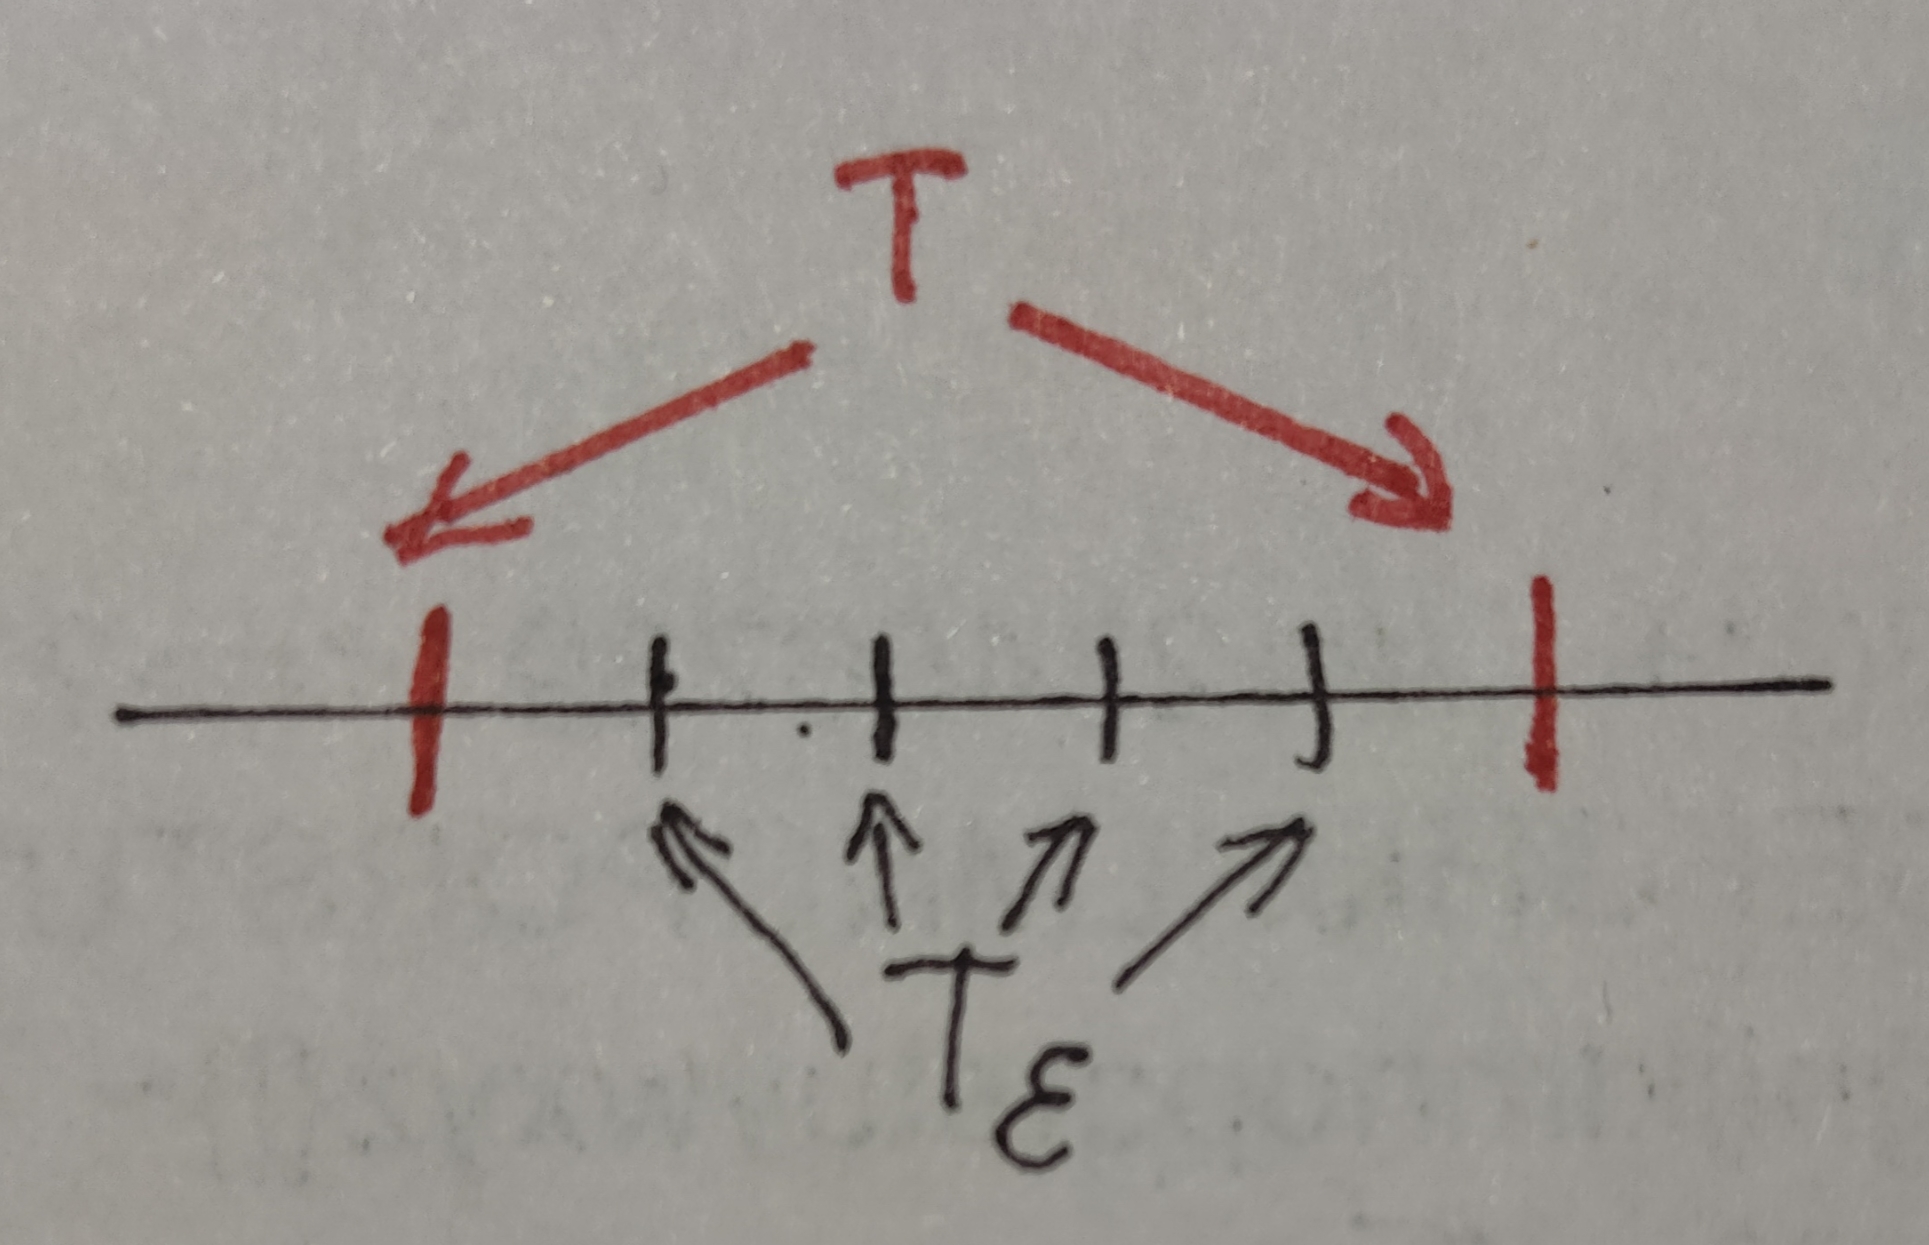 T
Tε